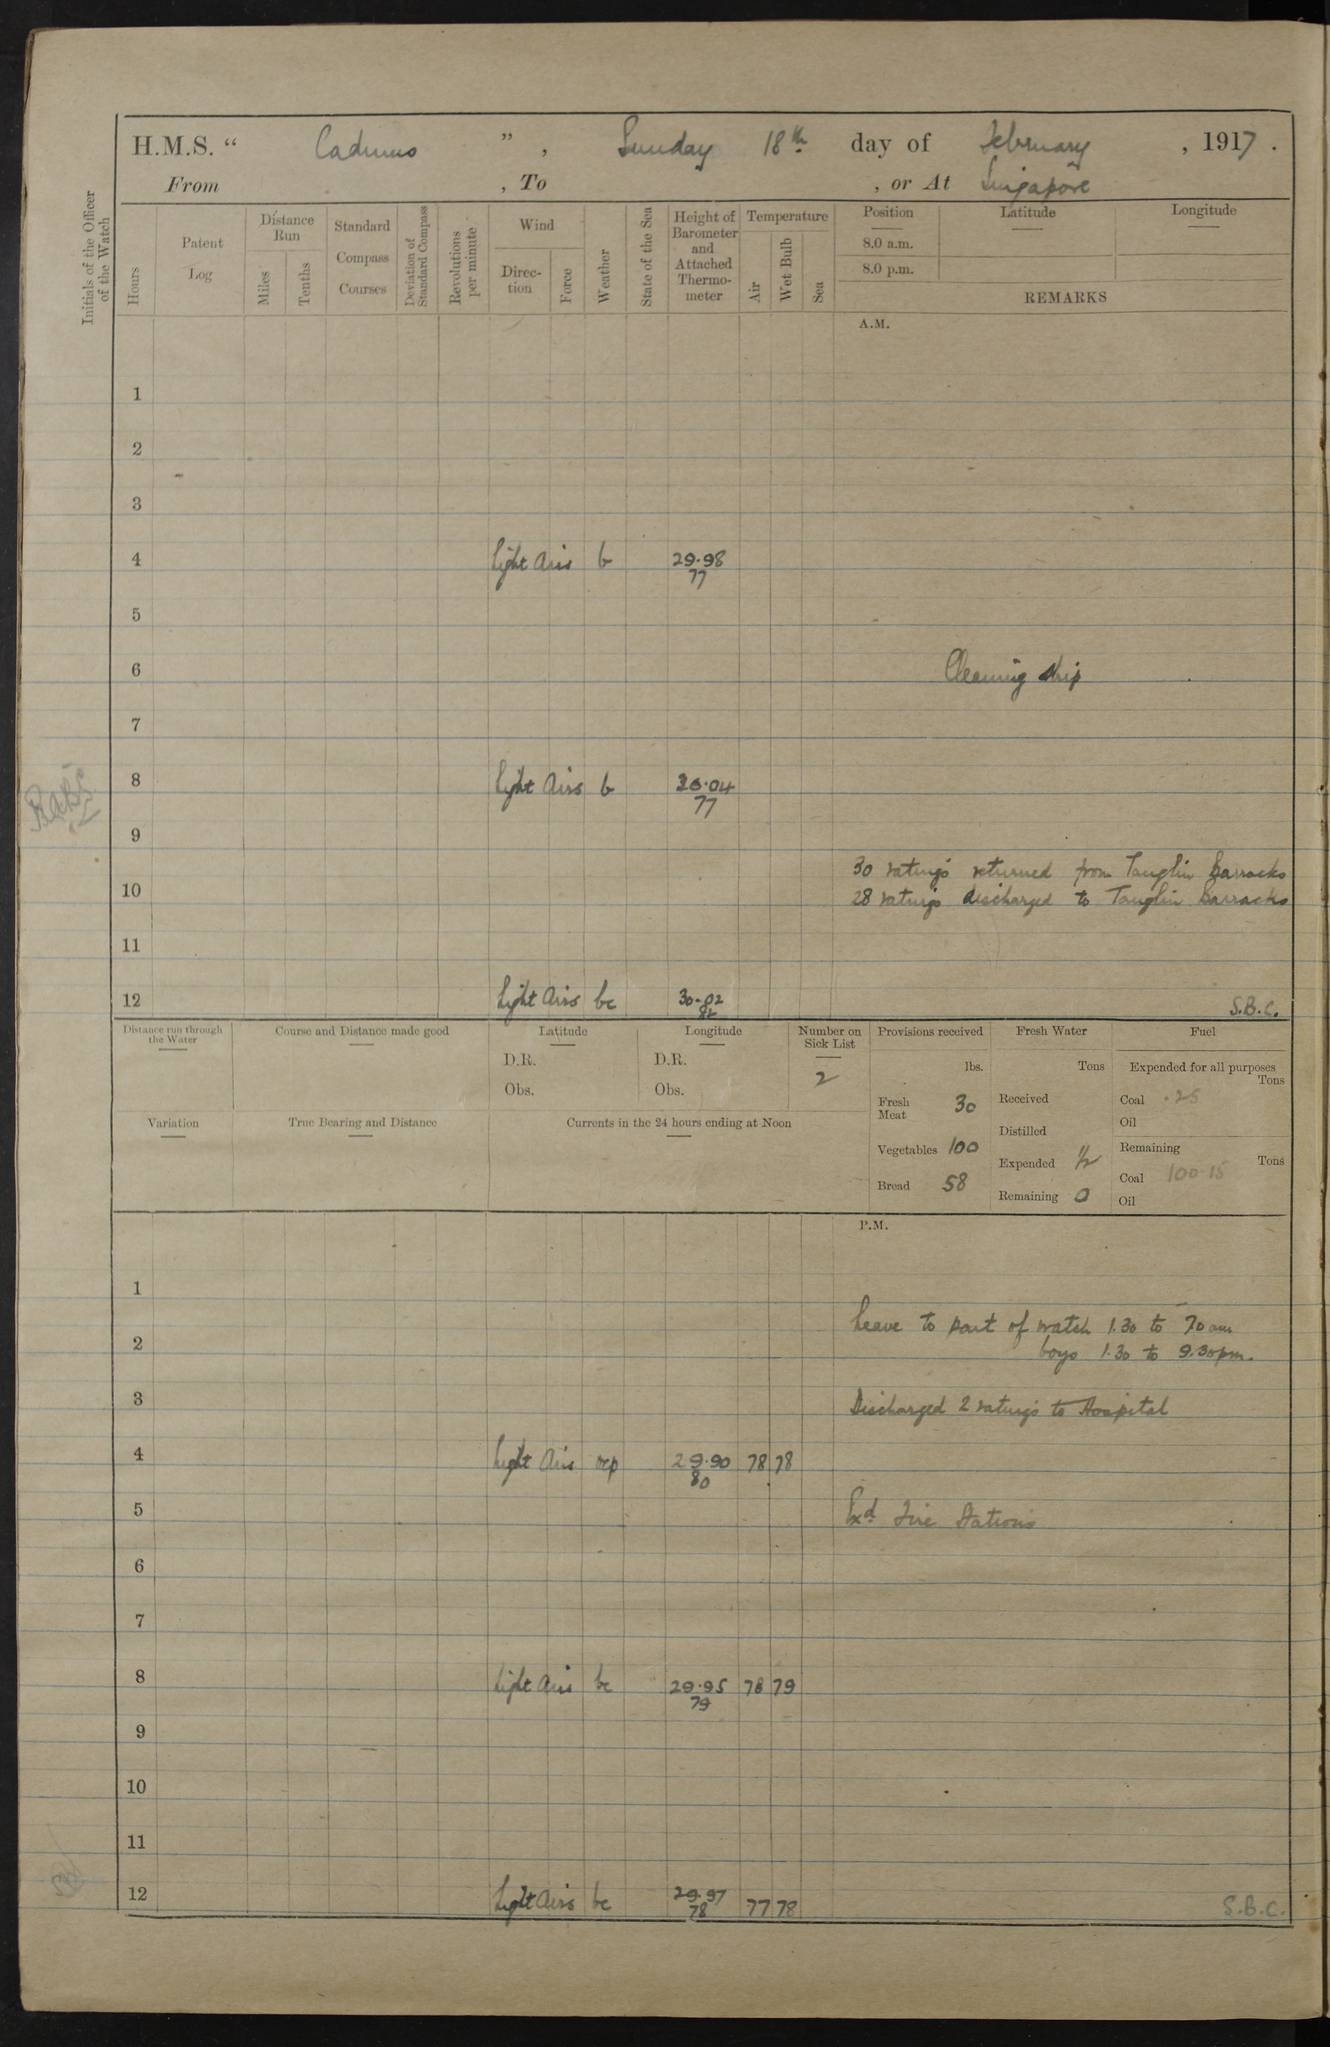 H.M.S. " Cadmus ", Sunday 18th day of February, 1917.
From , To , or At Singapore
Initials of the Officer of the Watch
Hours
Patent Log
Distance Run
Miles
Tenths
Standard Compass Courses
Deviation of Standard Compass
Revolutions per minute
Wind
Direc-tion
Force
Weather
State of the Sea
Height of Barometer and Attached Thermo-meter
Temperature
Air
Wet Bulb
Sea
Position Latitude Longitude
8.0 a.m.
8.0 p.m.
REMARKS
A.M.
1
2
3
4 Light Airs b 29.98
77
5
6 Cleaning ship
7
8 Light Airs b 30.04
77
9
30 ratings returned from Tanglin Barracks
10 28 ratings discharged to Tanglin Barracks
11
12 Light Airs bc 30.02 S.B.C.
82
Distance run through the Water
Course and Distance made good
Latitude
D.R.
Obs.
Longitude
D.R.
Obs.
Number on Sick List
2
Provisions received
lbs.
Fresh Meat 30
Vegetables 100
Bread 58
Fresh Water
Tons
Received
Distilled
Expended 1/2
Remaining 0
Fuel
Expended for all purposes
Tons
Coal .25
Oil
Remaining
Tons
Coal 100.15
Oil
Variation
True Bearing and Distance
Currents in the 24 hours ending at Noon
P.M.
1
Leave to part of watch 1.30 to 7.0 am
2 boys 1.30 to 9.30 pm.
3 Discharged 2 ratings to Hospital
4 Light Airs ocp 29.90 78 78
80
5 Exd Fire Stations
6
7
8 Light Airs bc 29.95 78 79
79
9
10
11
12 Light Airs bc 29.97 77 78 S.B.C.
78